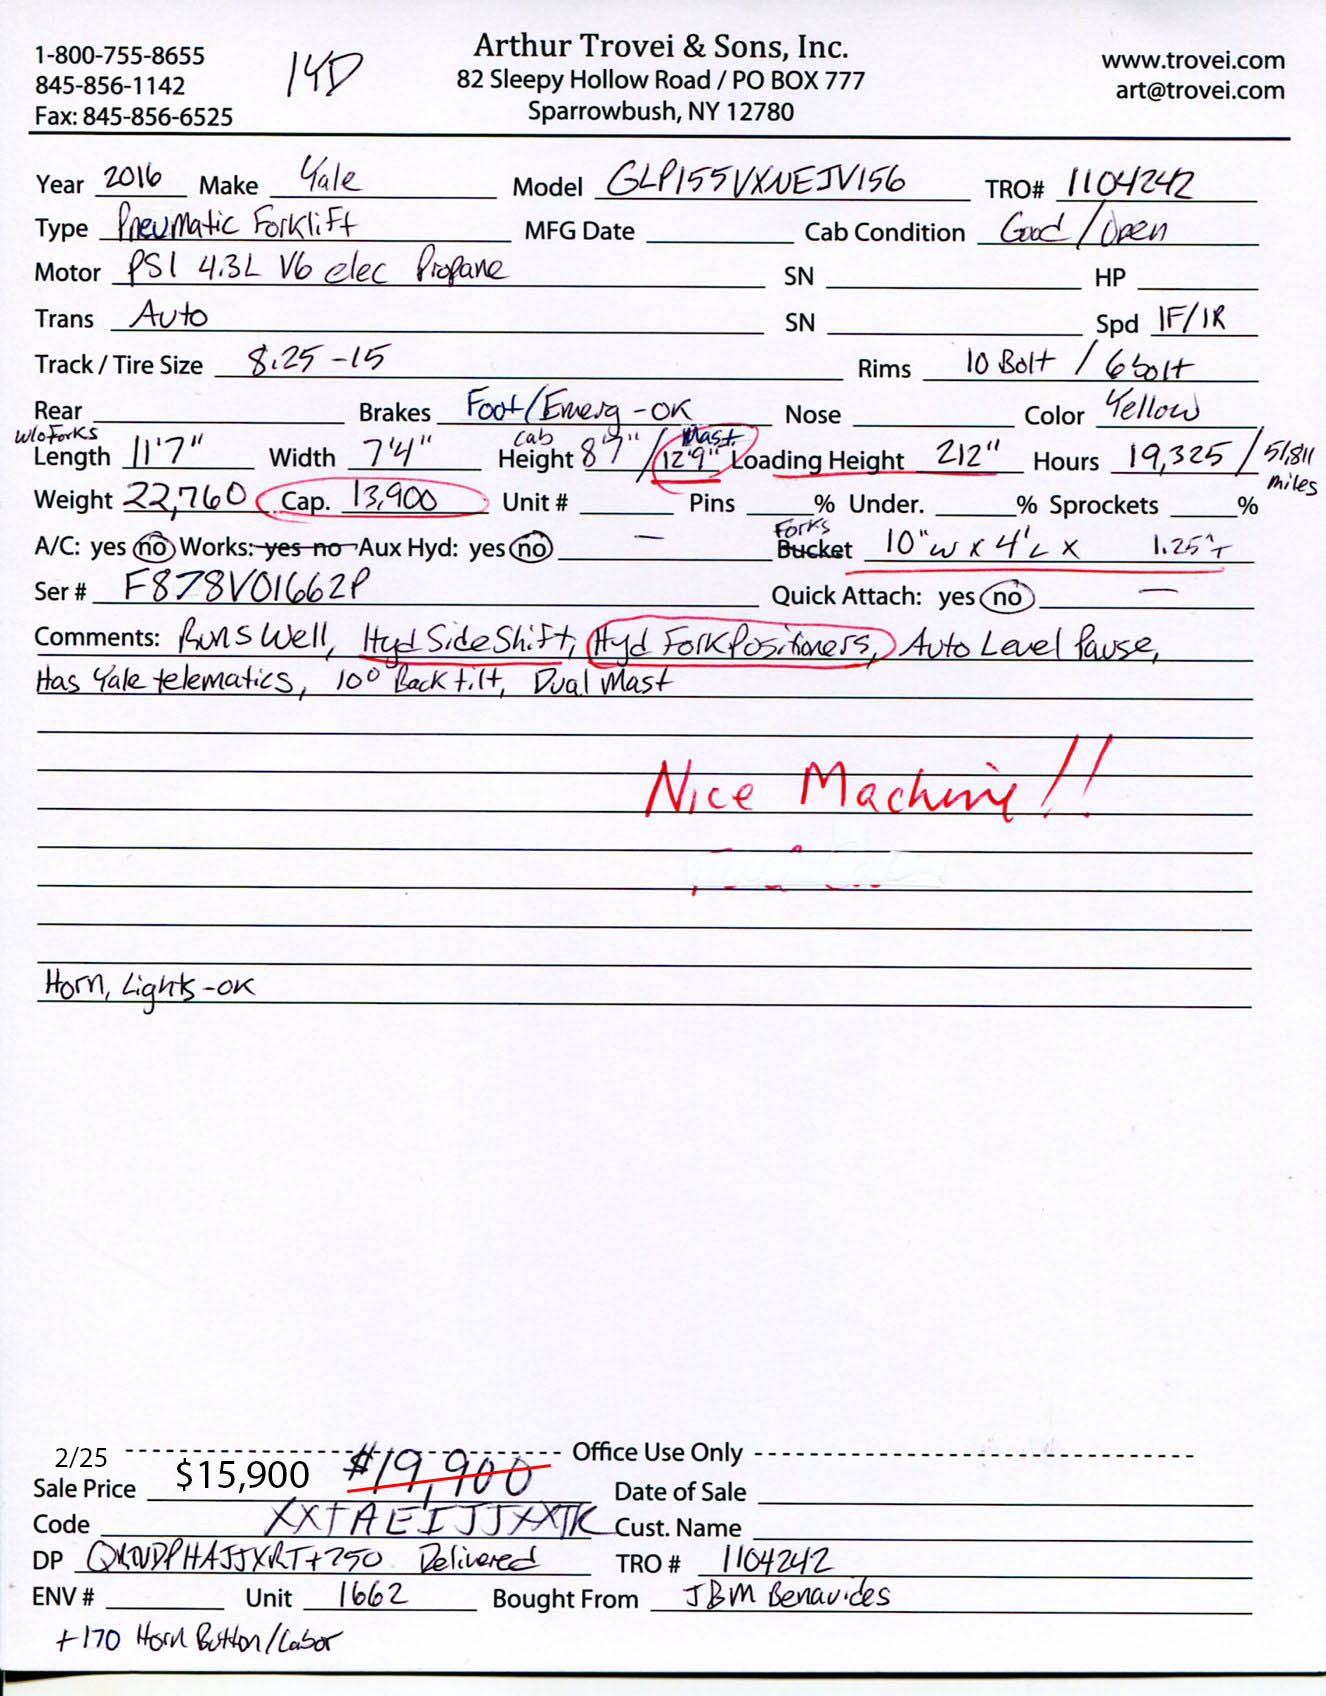 1-800-755-8655
845-856-1142
Fax: 845-856-6525
14D
Arthur Trovei & Sons, Inc.
82 Sleepy Hollow Road / PO BOX 777
Sparrowbush, NY 12780
www.trovei.com
art@trovei.com
Year 2016 Make Yale Model GLP155VXNEJV156 TRO# 1104242
Type Pneumatic Forklift MFG Date Cab Condition Good / Open
Motor PSI 4.3L V6 elec Propane SN HP
Trans Auto SN Spd 1F/1R
Track / Tire Size 8.25-15 Rims 10 Bolt / 6 bolt
Rear Brakes Foot/Emerg-OK Nose Color Yellow
w/o Forks cab Mast
Length 11'7" Width 7'4" Height 8'7" / 12'9" Loading Height 212" Hours 19,325 / 51,811 miles
Weight 22,760 Cap. 13,900 Unit # Pins % Under. % Sprockets %
Forks
A/C: yes no Works: yes no Aux Hyd: yes no — Bucket 10"W x 4'L x 1.25"T
Ser # F878V01662P Quick Attach: yes no —
Comments: Runs Well, Hyd Side Shift, Hyd Fork Positioners, Auto Level Pause,
Has Yale telematics, 10° Back tilt, Dual Mast
Nice Machine!!
Horn, Lights-OK
2/25 Office Use Only
Sale Price $15,900 $19,900 Date of Sale
Code XXTAEIJJXXTK Cust. Name
DP +750 Delivered TRO # 1104242
ENV # Unit 1662 Bought From JBM Benavides
+170 Horn Button/Labor